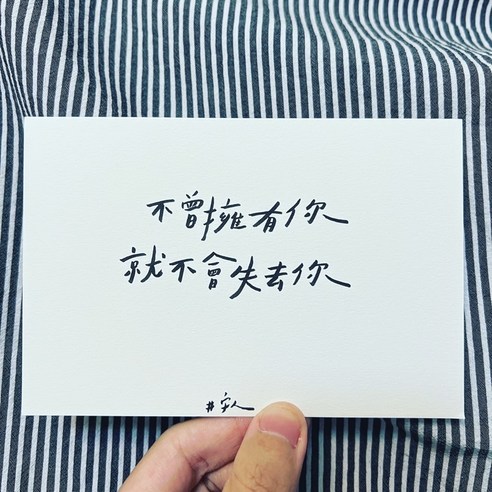 不曾擁有你
就不會失去你
#安人